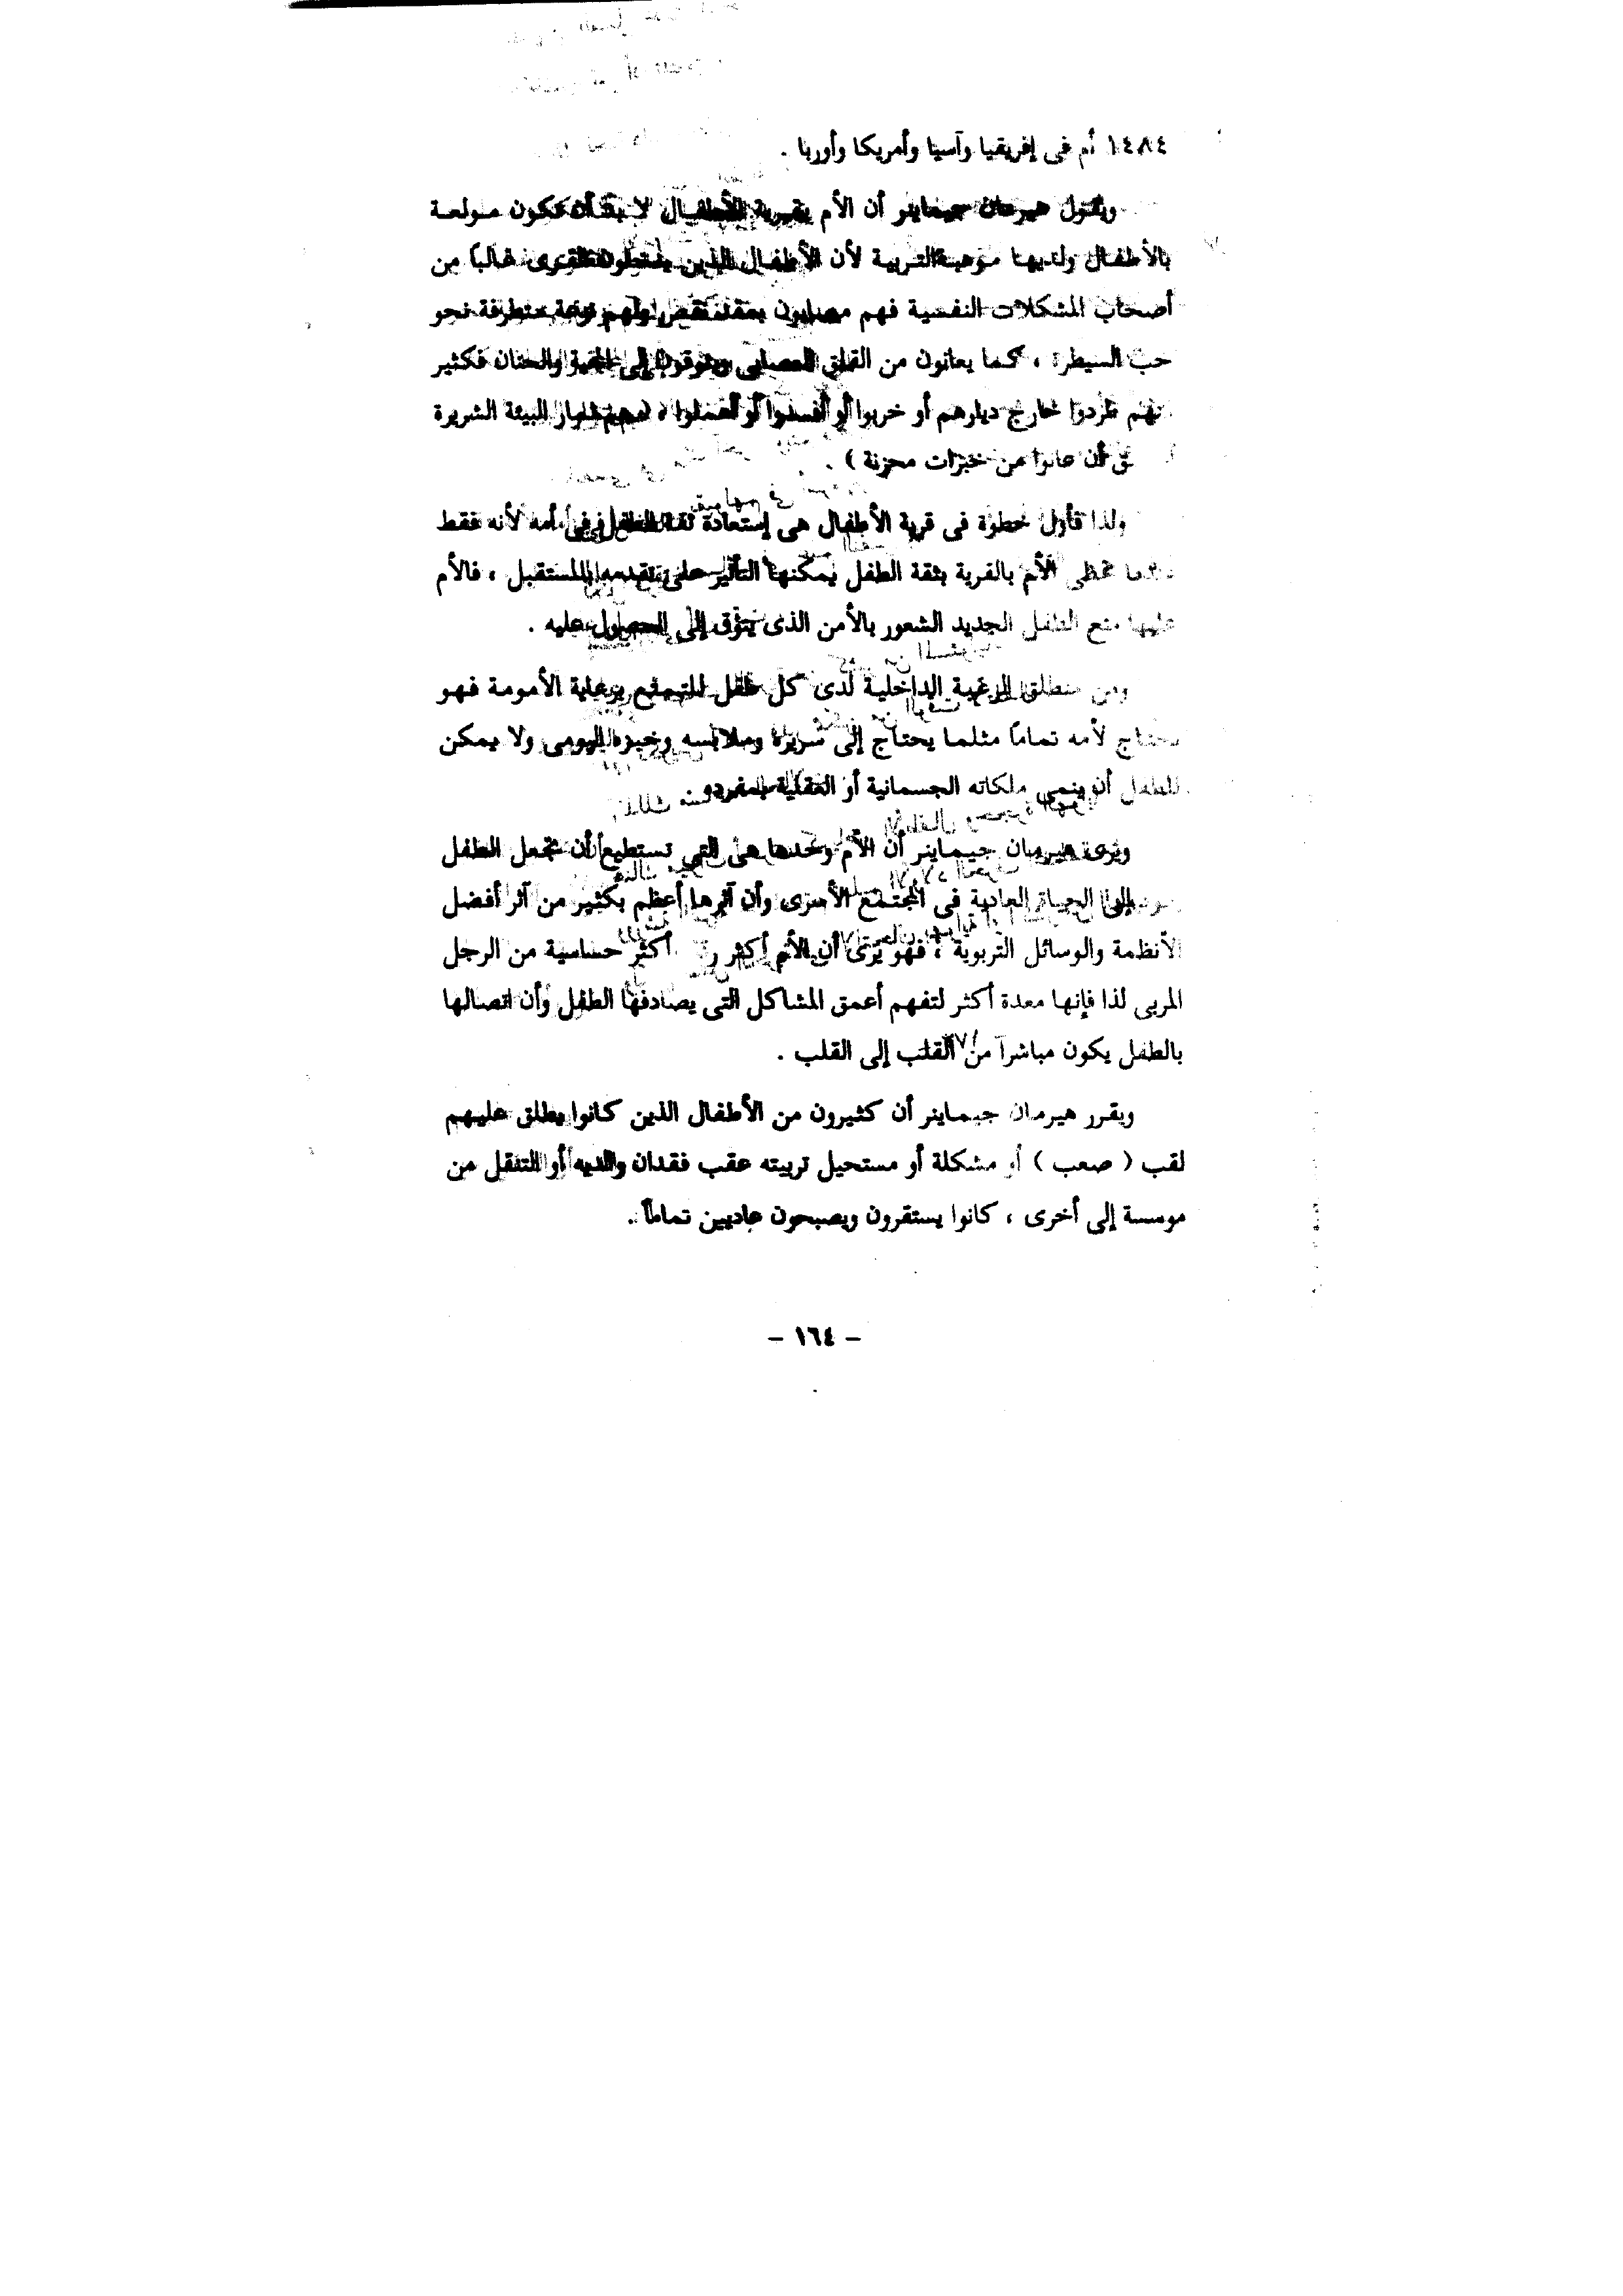 ١٤٨٤ أم فى إفريقيا وآسيا وأمريكا وأوربا .
ويقول هيرمان جيماينر أن الأم بقرية الأطفال لا بد أن تكون مولعة
بالأطفال ولديها موهبة التربية لأن الأطفال الذين يدخلون القرى غالباً من
أصحاب المشكلات النفسية فهم مصابون بعقد نقص ولهم نزعة متطرفة نحو
حب السيطرة ، كما يعانون من القلق العصابى ويتوقون إلى المحبة والحنان فكثير
منهم طردوا خارج ديارهم أو خربوا أو أفسدوا أو أهملوا ( البيئة الشريرة
أن عانوا من خبرات محزنة ) .
ولذا فأول خطوة فى قرية الأطفال هى إستعادة ثقة الطفل فى أمه لأنه فقط
عندما تحظى الأم بالقرية بثقة الطفل يمكنها التأثير على تقدمه بالمستقبل ، فالأم
عليها منح الطفل الجديد الشعور بالأمن الذى يتوق إلى الحصول عليه .
ومن منطلق الرغبة الداخلية لدى كل طفل للتمتع برعاية الأمومة فهو
يحتاج لأمه تماماً مثلما يحتاج إلى سريره وملابسه وخبزه اليومى ولا يمكن
للطفل أن ينمى ملكاته الجسمانية أو العقلية بمفرده .
ويرى هيرمان جيماينر أن الأم وحدها هى التى تستطيع أن تجعل الطفل
يعود إلى الحياة العادية فى المجتمع الأسرى وأن آثرها أعظم بكثير من آثر أفضل
الأنظمة والوسائل التربوية ، فهو يرى أن الأم أكثر أكثر حساسية من الرجل
المربى لذا فإنها معدة أكثر لتفهم أعمق المشاكل التى يصادفها الطفل وأن اتصالها
بالطفل يكون مباشراً من القلب إلى القلب .
ويقرر هيرمان جيماينر أن كثيرون من الأطفال الذين كانوا يطلق عليهم
لقب ( صعب ) أو مشكلة أو مستحيل تربيته عقب فقدان والديه أو التنقل من
موسسة إلى أخرى ، كانوا يستقرون ويصبحون عاديين تماماً .
– ١٦٤ –